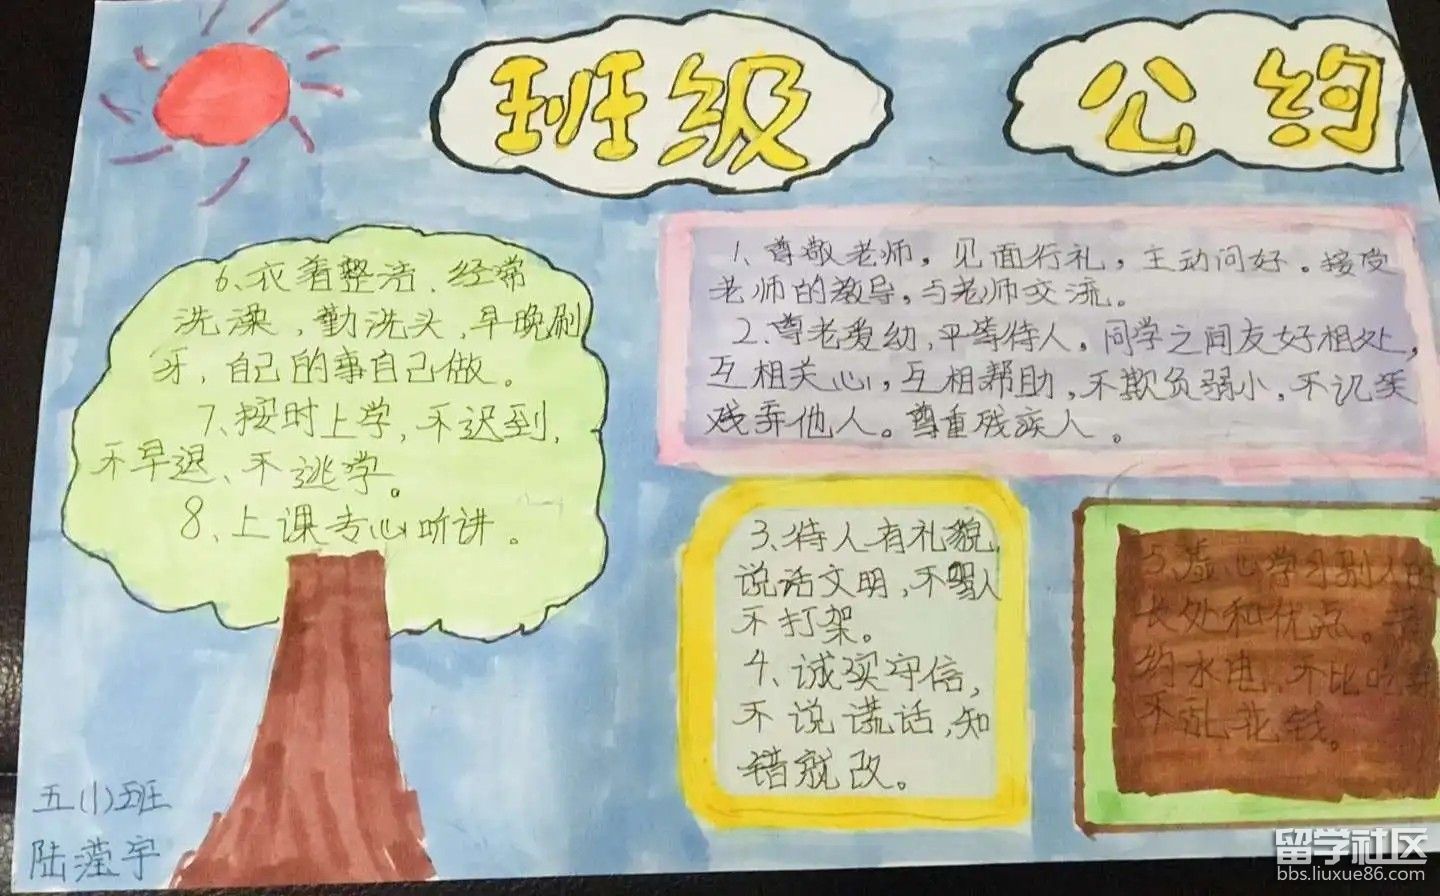 班级 公约
1、尊敬老师，见面行礼，主动问好。接受
老师的教导，与老师交流。
2、尊老爱幼，平等待人。同学之间友好相处，
互相关心，互相帮助，不欺负弱小，不讥笑
戏弄他人。尊重残疾人。
3、待人有礼貌，
说话文明，不骂人
不打架。
4、诚实守信，
不说谎话，知
错就改。
5、虚心学习别人的
长处和优点。
约水电，不比吃
不乱花钱。
6、衣着整洁、经常
洗澡，勤洗头，早晚刷
牙，自己的事自己做。
7、按时上学，不迟到，
不早退、不逃学。
8、上课专心听讲。
五(1)班
陆滢宇
留学社区
bbs.liuxue86.com